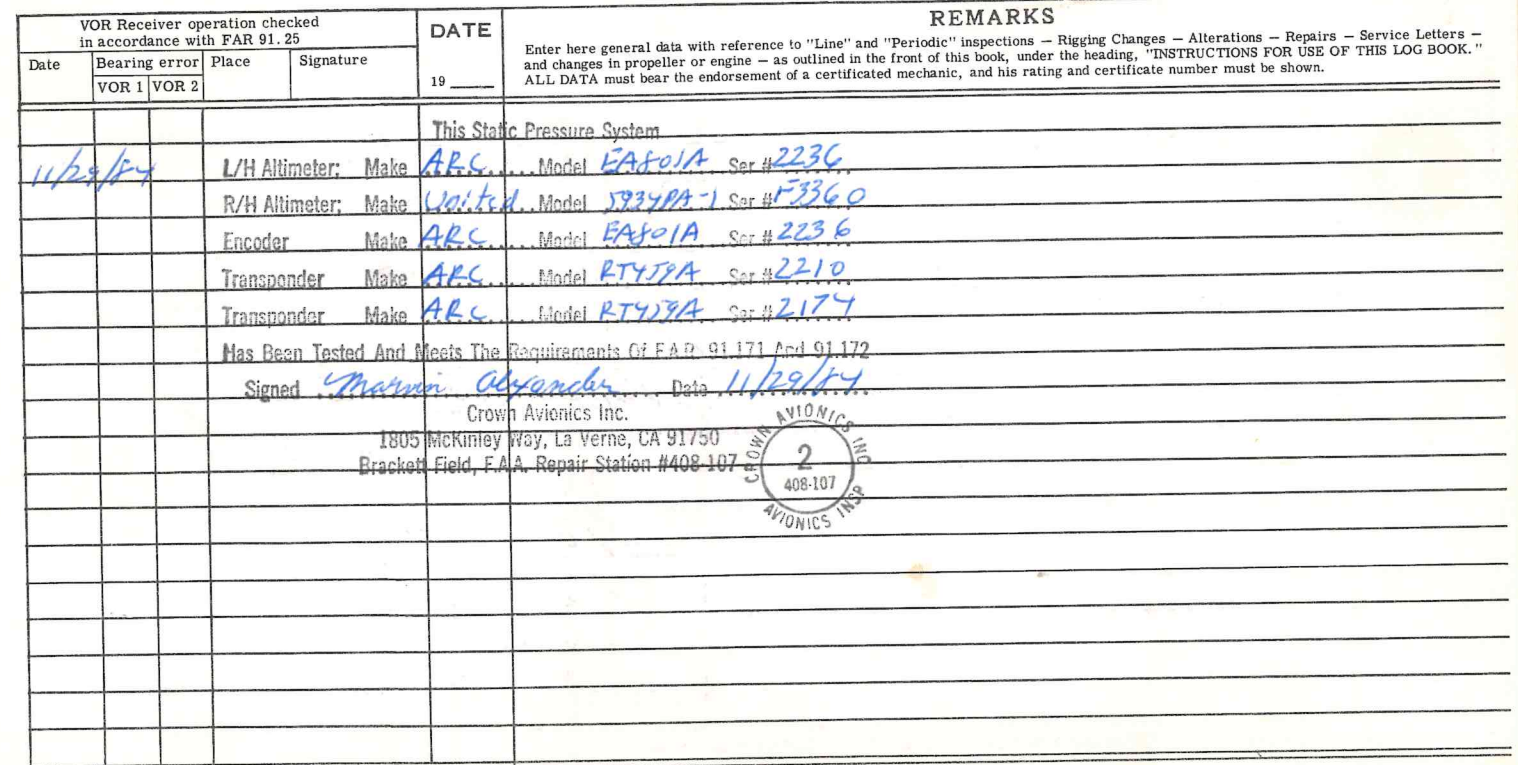 VOR Receiver operation checked
in accordance with FAR 91.25
Date Bearing error Place Signature
VOR 1 VOR 2
DATE
19
REMARKS
Enter here general data with reference to "Line" and "Periodic" inspections — Rigging Changes — Alterations — Repairs — Service Letters —
and changes in propeller or engine — as outlined in the front of this book, under the heading, "INSTRUCTIONS FOR USE OF THIS LOG BOOK."
ALL DATA must bear the endorsement of a certificated mechanic, and his rating and certificate number must be shown.
This Static Pressure System
11/29/84 L/H Altimeter; Make ARC Model EA801A Ser #2236
R/H Altimeter; Make United Model 5934PA-1 Ser #F3360
Encoder Make ARC Model EA801A Ser #2236
Transponder Make ARC Model RT459A Ser #2210
Transponder Make ARC Model RT459A Ser #2174
Has Been Tested And Meets The Requirements Of F.A.R. 91.171 And 91.172
Signed Marvin Alexander Date 11/29/84
Crown Avionics Inc.
1805 McKinley Way, La Verne, CA 91750
Brackett Field, F.A.A. Repair Station #408-107
CROWN AVIONICS INC
2
408-107
AVIONICS INSP